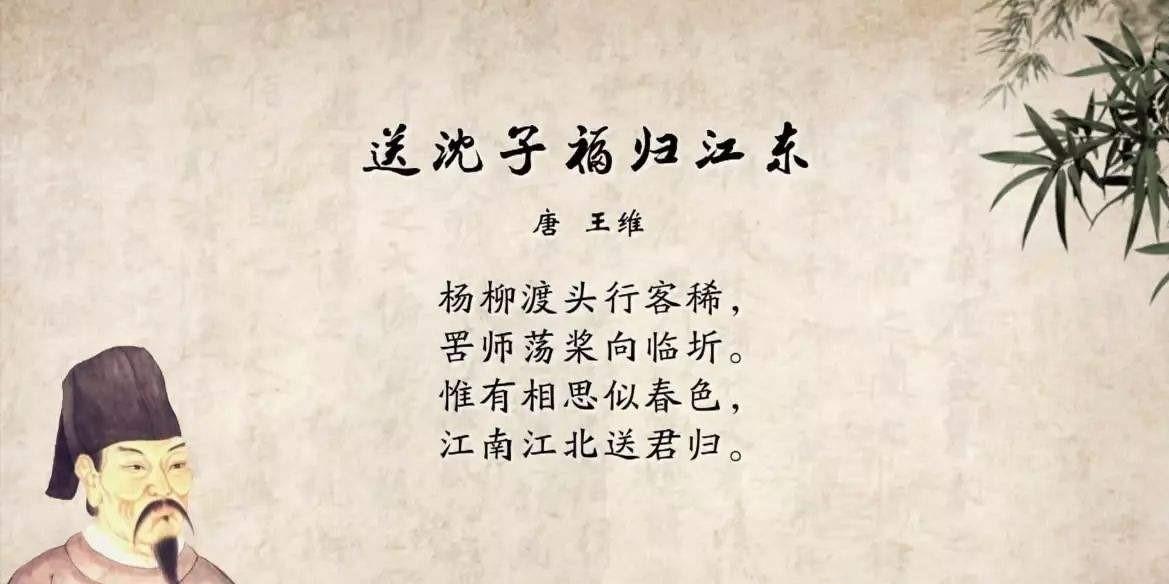 送沈子福归江东
唐 王维
杨柳渡头行客稀，
罟师荡桨向临圻。
惟有相思似春色，
江南江北送君归。